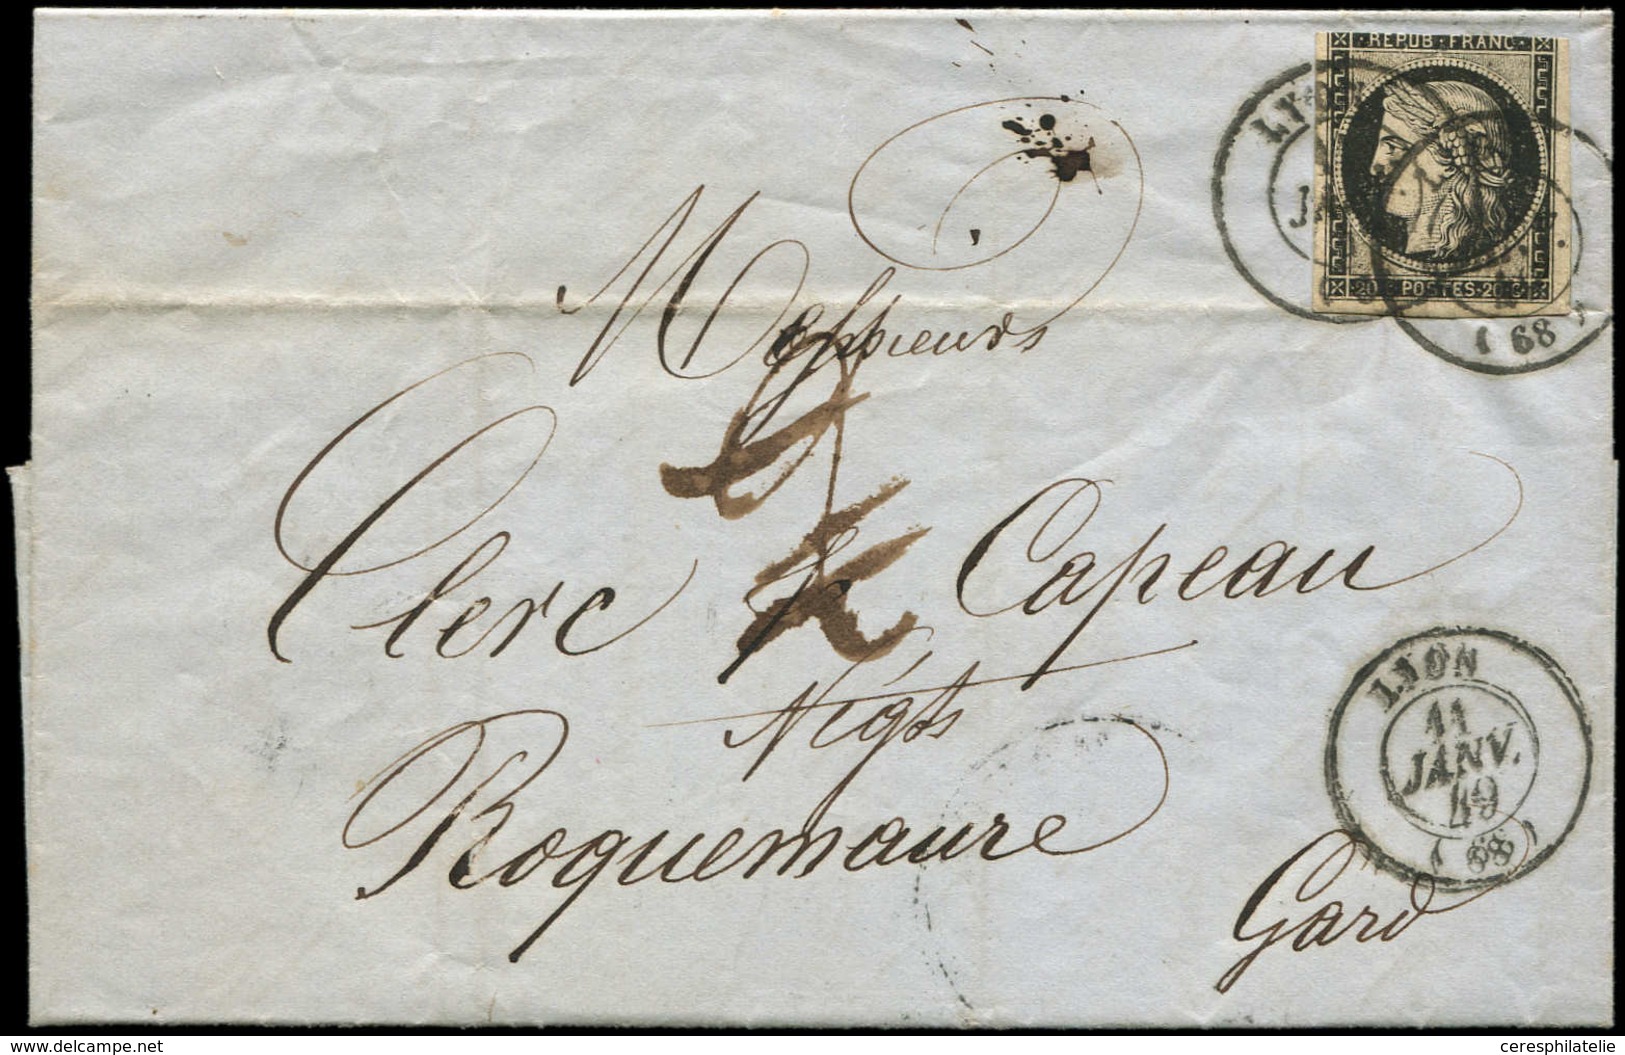 · REPUB · FRANC ·
LYON
· 20 C · POSTES · 20 C ·
( 68 )
Messieurs
Clerc & Capeau
Négts
Roquemaure
Gard
LYON
11
JANV.
49
( 68 )
www.delcampe.net
ceresphilatelie